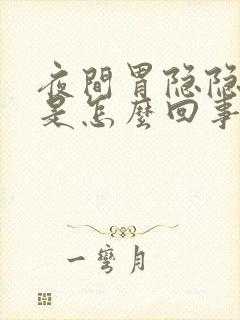 夜間胃隐隐
是怎麼回事
一彎月